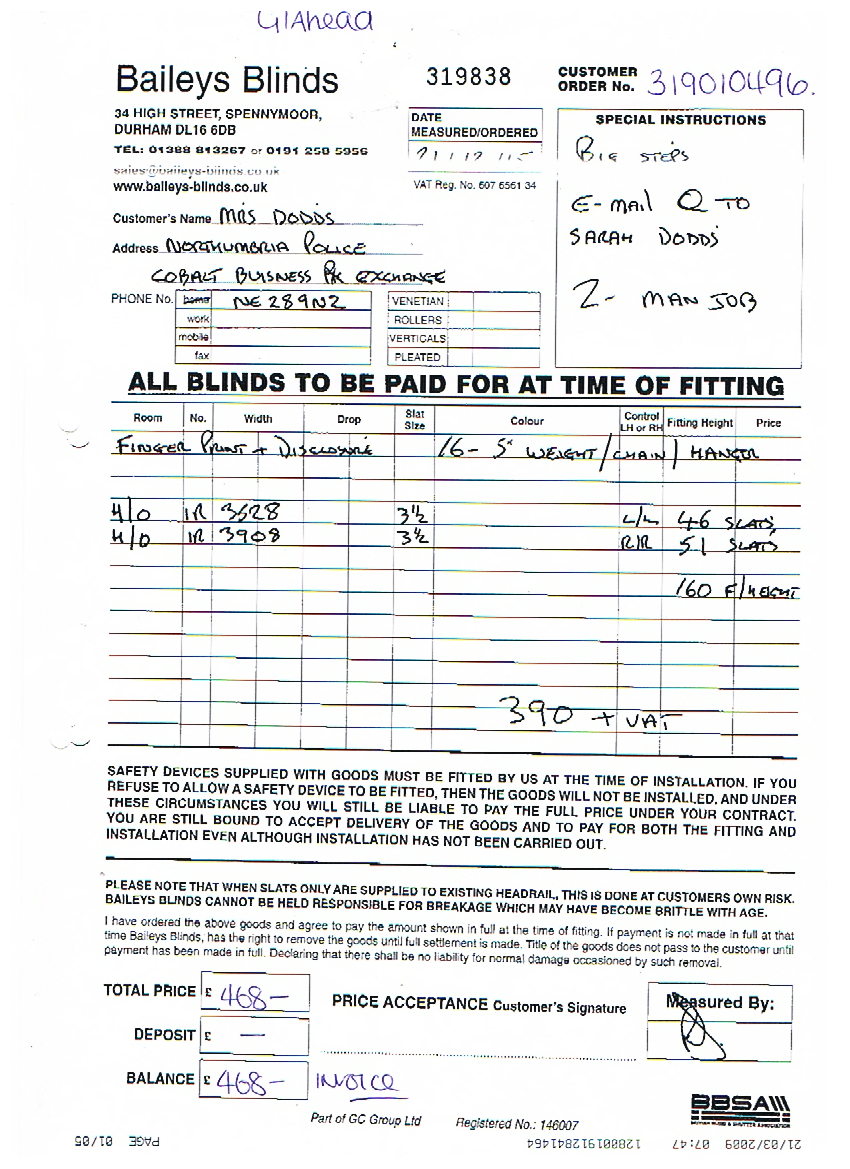 G/Ahead
Baileys Blinds
319838
CUSTOMER ORDER No. 319010496.
34 HIGH STREET, SPENNYMOOR,
DURHAM DL16 6DB
TEL: 01388 813267 or 0191 250 5956
sales@baileys-blinds.co.uk
www.baileys-blinds.co.uk
DATE
MEASURED/ORDERED
VAT Reg. No. 607 6561 34
SPECIAL INSTRUCTIONS
BIG STEPS
E-MAIL Q TO
SARAH DODDS
2- MAN JOB
Customer's Name MRS DODDS
Address NORTHUMBRIA POLICE
COBALT BUISNESS PK EXCHANGE
PHONE No. home NE289NZ
work
mobile
fax
VENETIAN
ROLLERS
VERTICALS
PLEATED
ALL BLINDS TO BE PAID FOR AT TIME OF FITTING
Room No. Width Drop Slat Size Colour Control LH or RH Fitting Height Price
FINGER PRINT + DISCLOSURE 16- 5" WEIGHT/CHAIN/HANGER
H/O 1R 3628 3½ L/L 46 SLATS
H/O 1R 3908 3½ R/R 51 SLATS
160 F/HEIGHT
390 + VAT
SAFETY DEVICES SUPPLIED WITH GOODS MUST BE FITTED BY US AT THE TIME OF INSTALLATION. IF YOU
REFUSE TO ALLOW A SAFETY DEVICE TO BE FITTED, THEN THE GOODS WILL NOT BE INSTALLED, AND UNDER
THESE CIRCUMSTANCES YOU WILL STILL BE LIABLE TO PAY THE FULL PRICE UNDER YOUR CONTRACT.
YOU ARE STILL BOUND TO ACCEPT DELIVERY OF THE GOODS AND TO PAY FOR BOTH THE FITTING AND
INSTALLATION EVEN ALTHOUGH INSTALLATION HAS NOT BEEN CARRIED OUT.
PLEASE NOTE THAT WHEN SLATS ONLY ARE SUPPLIED TO EXISTING HEADRAIL, THIS IS DONE AT CUSTOMERS OWN RISK.
BAILEYS BLINDS CANNOT BE HELD RESPONSIBLE FOR BREAKAGE WHICH MAY HAVE BECOME BRITTLE WITH AGE.
I have ordered the above goods and agree to pay the amount shown in full at the time of fitting. If payment is not made in full at that
time Baileys Blinds, has the right to remove the goods until full settlement is made. Title of the goods does not pass to the customer until
payment has been made in full. Declaring that there shall be no liability for normal damage occasioned by such removal.
TOTAL PRICE £ 468-
PRICE ACCEPTANCE Customer's Signature
Measured By:
DEPOSIT £ —
BALANCE £ 468- INVOICE
BBSA
BRITISH BLIND & SHUTTER ASSOCIATION
Part of GC Group Ltd
Registered No.: 146007
21/03/2009 07:47 120001912841464 PAGE 01/05